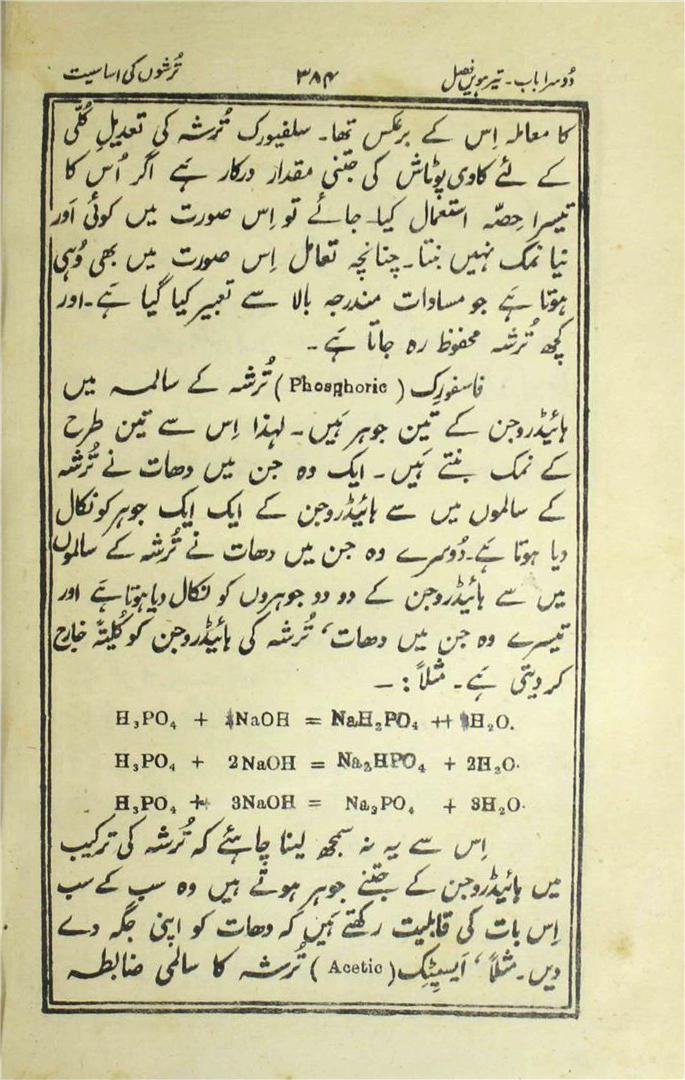 دُوسرا باب۔ تیرھویں فصل ۳۸۴ تُرشوں کی اساسیت
کا معاملہ اِس کے برعکس تھا۔ سلفیورک تُرشہ کی تعدیلِ کُلّی
کے لئے کاوی پوٹاش کی جتنی مقدار درکار ہے اگر اُس کا
تیسرا حِصّہ استعمال کیا جائے تو اِس صورت میں کوئی اَور
نیا نمک نہیں بنتا۔ چنانچہ تعامل اِس صورت میں بھی وُہی
ہوتا ہے جو مساوات مندرجہ بالا سے تعبیر کیا گیا ہے۔ اور
کچھ تُرشہ محفوظ رہ جاتا ہے۔
فاسفورک (Phosphoric) تُرشہ کے سالمہ میں
ہائیڈروجن کے تین جوہر ہَیں۔ لہذا اِس سے تین طرح
کے نمک بنتے ہَیں۔ ایک وہ جن میں دھات نے تُرشہ
کے سالموں میں سے ہائیڈروجن کے ایک ایک جوہر کو نکال
دیا ہوتا ہے۔ دُوسرے وہ جن میں دھات نے تُرشہ کے سالموں
میں سے ہائیڈروجن کے دو دو جوہروں کو نکال دیا ہوتا ہے اور
تیسرے وہ جن میں دھات، تُرشہ کی ہائیڈروجن کو کُلیتہً خارج
کر دیتی ہے۔ مثلاً :۔
H₃PO₄ + NaOH = NaH₂PO₄ + H₂O.
H₃PO₄ + 2NaOH = Na₂HPO₄ + 2H₂O.
H₃PO₄ + 3NaOH = Na₃PO₄ + 3H₂O.
اِس سے یہ نہ سمجھ لینا چاہئے کہ تُرشہ کی ترکیب
میں ہائیڈروجن کے جتنے جوہر ہوتے ہیں وہ سب کے سب
اِس بات کی قابلیت رکھتے ہَیں کہ دھات کو اپنی جگہ دے
دیں۔ مثلاً، اَیسِیٹِک (Acetic) تُرشہ کا سالمی ضابطہ